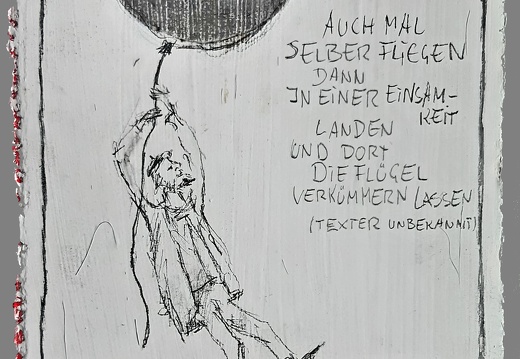 AUCH MAL
SELBER FLIEGEN
DANN
IN EINER EINSAM-
KEIT
LANDEN
UND DORT
DIE FLÜGEL
VERKÜMMERN LASSEN
(TEXTER UNBEKANNT)